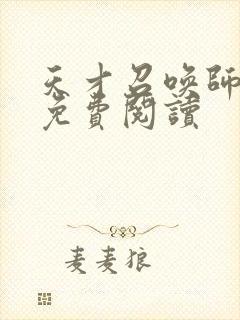 天才召喚師
免費閱讀
麦麦狼